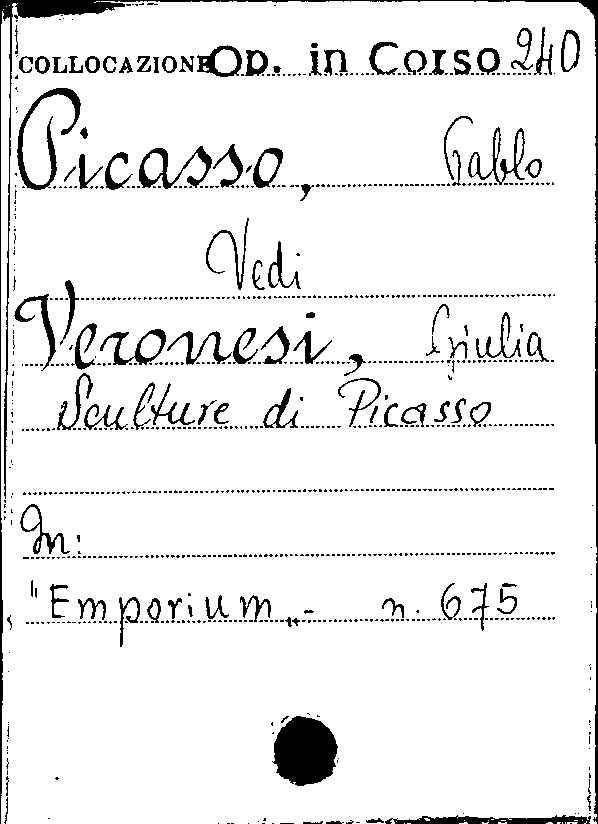 COLLOCAZIONE Op. in Corso 240
Picasso, Pablo
Vedi
Veronesi, Giulia
Sculture di Picasso
In:
"Emporium„- n. 675